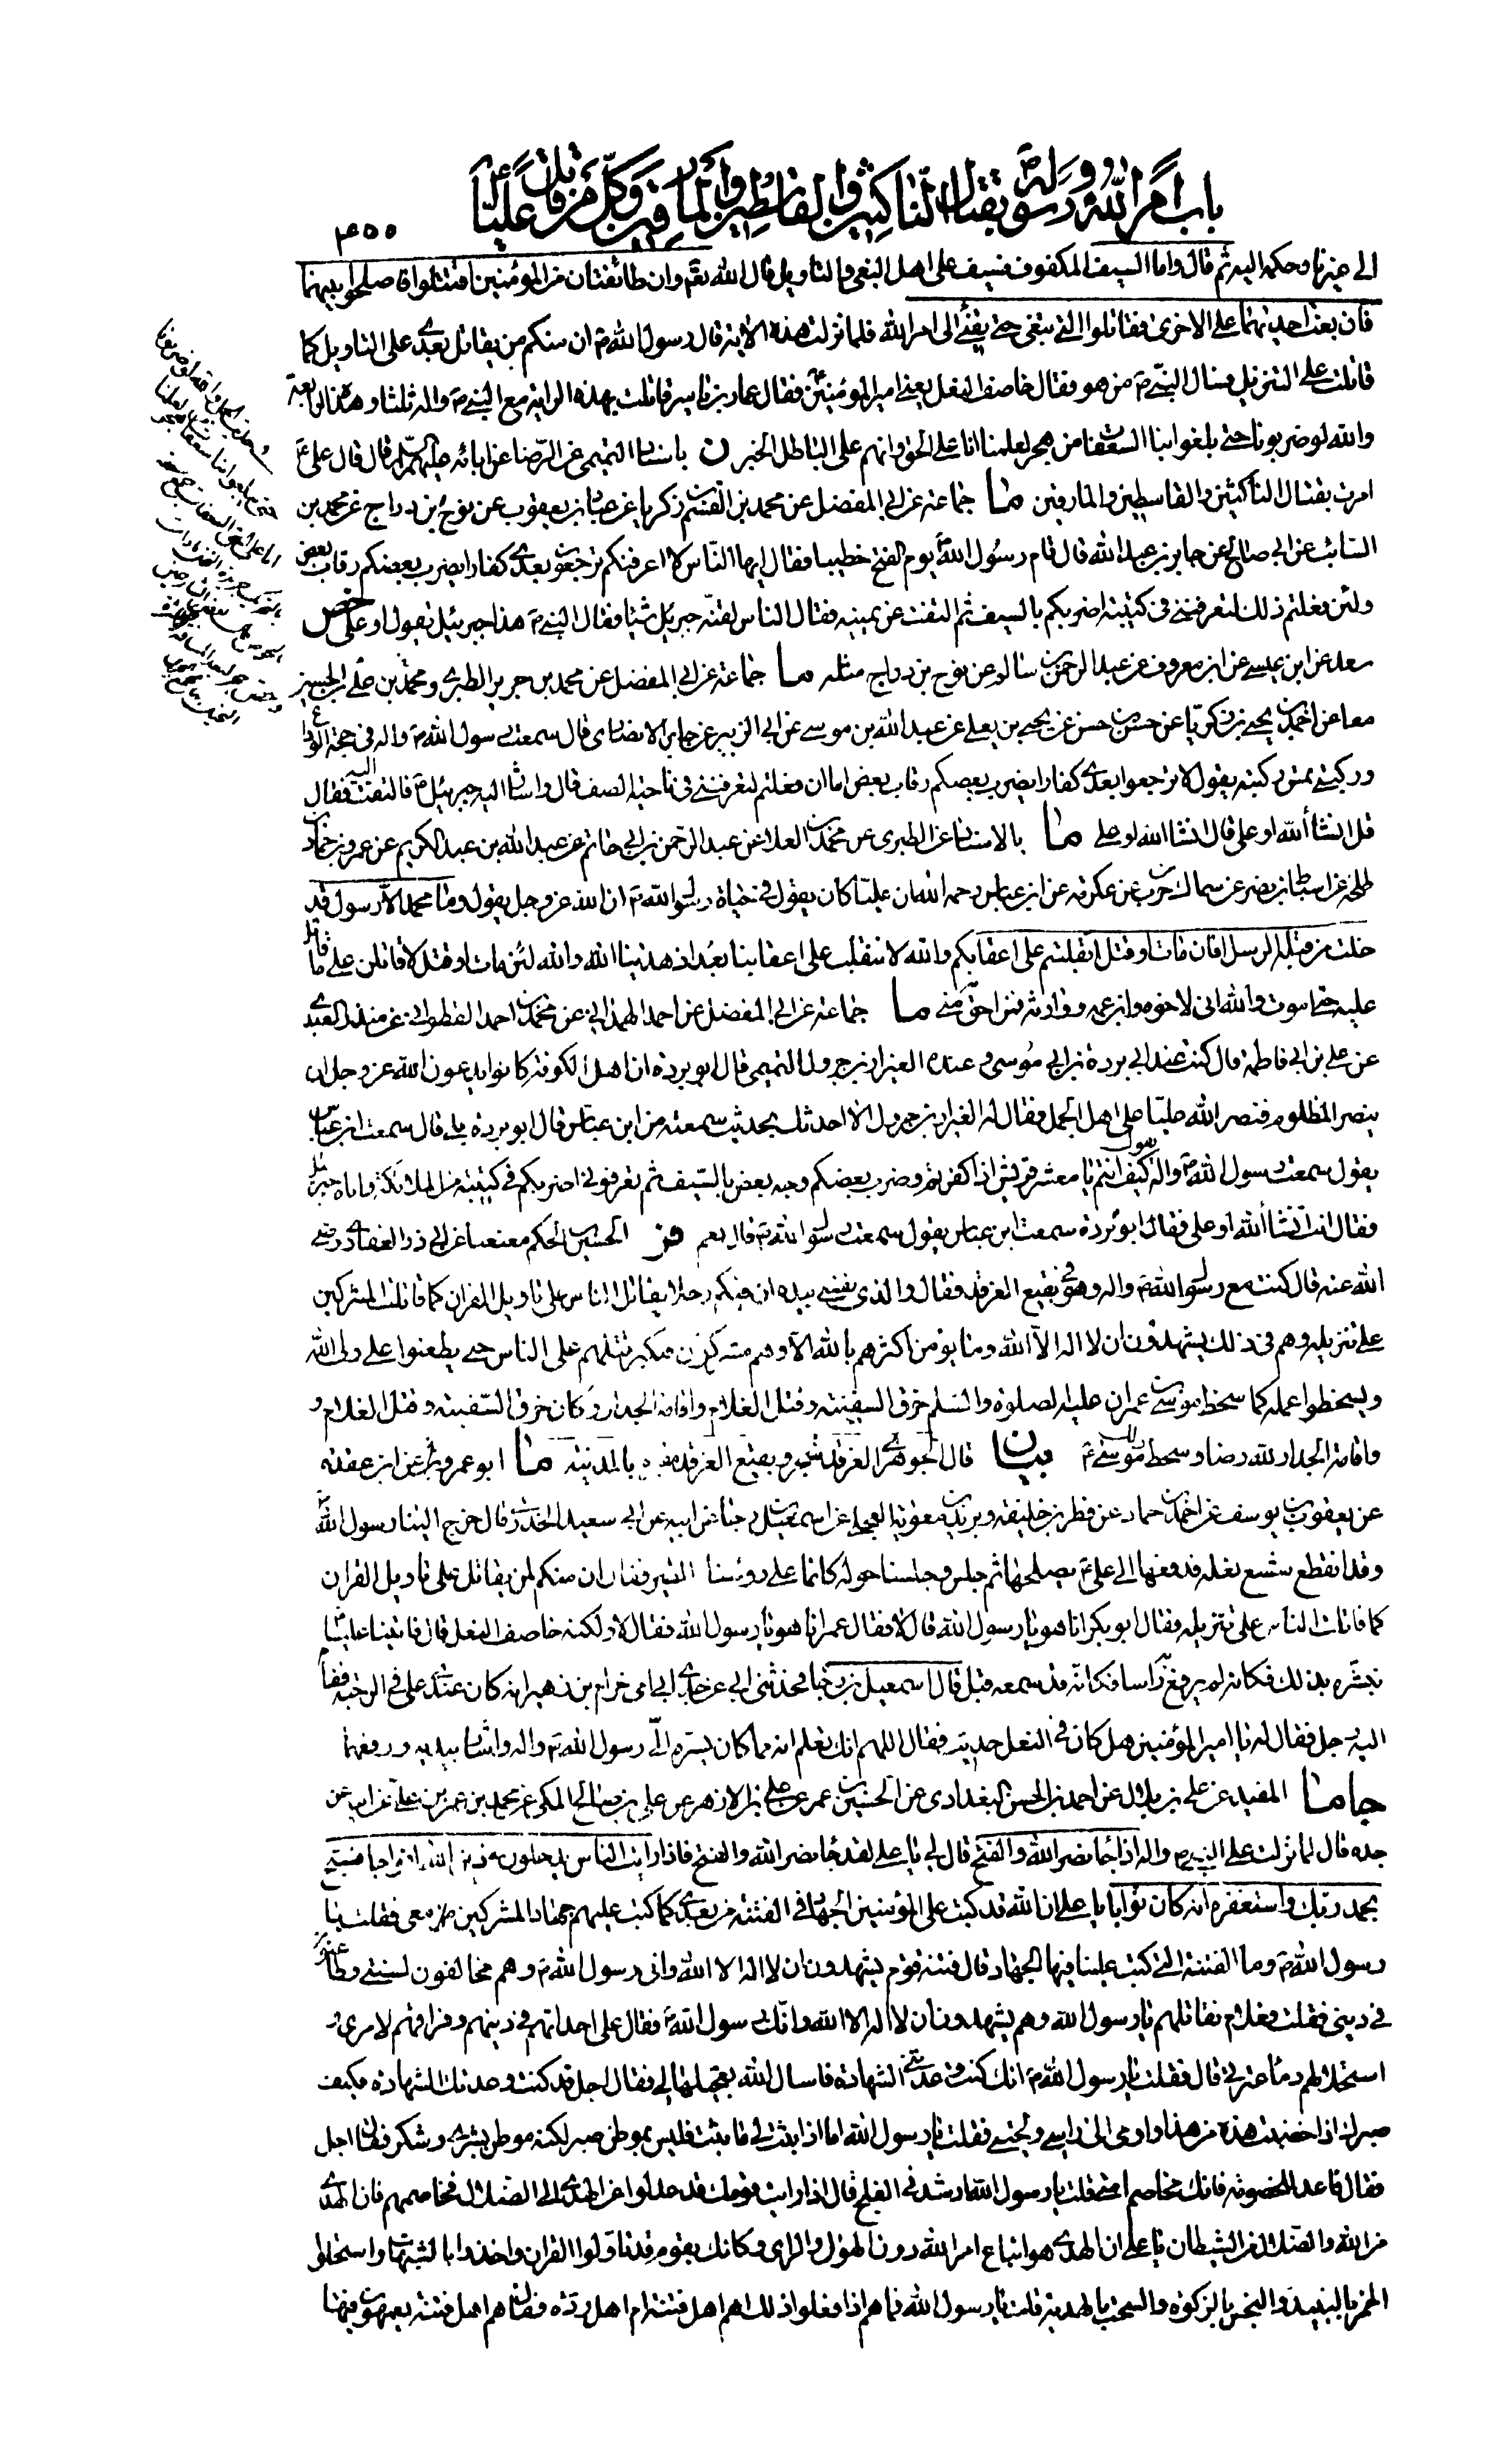 باب امر الله ورسوله ص بقتال الناكثين والقاسطين والمارقين وكل من قاتل عليا ع
٤٥٥
الى غيرنا وحكمه الينا ثم قال واما السيف المكفوف فسيف على اهل البغي والتاويل قال الله تع وان طائفتان من المؤمنين اقتتلوا فاصلحوا بينهما
فان بغت احديهما على الاخرى فقاتلوا التي تبغي حتى تفئ الى امر الله فلما نزلت هذه الاية قال رسول الله ص ان منكم من يقاتل بعدي على التاويل كما
قاتلت على التنزيل فسال النبي ص من هو فقال خاصف النعل يعني امير المؤمنين فقال عمار بن ياسر قاتلت بهذه الراية مع النبي ص واله ثلثا وهذه الرابعة
والله لو ضربونا حتى يبلغوا بنا السعفات من هجر لعلمنا انا على الحق وانهم على الباطل الخبر ن باسناد التميمي عن الرضا عن ابائه عليهم السلام قال قال علي ع
امرت بقتال الناكثين والقاسطين والمارقين ما جماعة عن ابي المفضل عن محمد بن القسم بن زكريا عن عباد بن يعقوب عن نوح بن دراج عن محمد بن
السائب عن ابي صالح عن جابر بن عبد الله قال قام رسول الله ص يوم الفتح خطيبا فقال ايها الناس لا اعرفنكم ترجعون بعدي كفارا يضرب بعضكم رقاب بعض
ولئن فعلتم ذلك لتعرفنني في كتيبة اضربكم بالسيف ثم التفت عن يمينه فقال الناس لقنه جبرئيل شيئا فقال النبي ص هذا جبرئيل يقول او علي خص
سعد عن ابن عيسى عن ابن معروف عن عبد الرحمن بن سالم عن نوح بن دراج مثله ما جماعة عن ابي المفضل عن محمد بن جرير الطبري ومحمد بن علي بن الحسين
معا عن احمد بن يحيى بن زكريا عن حسن بن حسن عن يحيى بن يعلى عن عبد الله بن موسى عن ابي الزبير عن جابر الانصاري قال سمعت رسول الله ص واله في حجة الوداع
وركبتي تمس ركبته يقول لا ترجعوا بعدي كفارا يضرب بعضكم رقاب بعض اما ان فعلتم لتعرفنني في ناحية الصف قال واشار اليه جبرئيل ص فالتفت اليه فقال
قل انشاء الله او علي قال انشاء الله او علي ما بالاسناد عن الطبري عن محمد بن العلا عن عبد الرحمن بن ابي حاتم عن عبد الله بن عبد الكريم عن عمرو بن حماد بن
طلحة عن اسباط بن نصر عن سماك بن حرب عن عكرمة عن ابن عباس رحمه الله ان عليا كان يقول في حياة رسول الله ص ان الله عز وجل يقول وما محمد الا رسول قد
خلت من قبله الرسل افان مات او قتل انقلبتم على اعقابكم والله لا ننقلب على اعقابنا بعد اذ هدينا الله والله لئن مات او قتل لاقاتلن على ما قاتل
عليه حتى اموت والله اني لاخوه وابن عمه ووارثه فمن احق به مني ما جماعة عن ابي المفضل عن احمد الهمداني عن محمد بن احمد القطواني عن منذر العبدي
عن علي بن ابي فاطمة قال كنت عند ابي بردة بن ابي موسى وعنده العيزار بن جرول التميمي قال ابو بردة ان اهل الكوفة كانوا يدعون الله عز وجل ان
ينصر المظلوم فنصر الله عليا على اهل الجمل فقال له العيزار بن جرول الا احدثك بحديث سمعته من ابن عباس قال ابو بردة بلى قال سمعت ابن عباس
يقول سمعت رسول الله ص واله يقول كيف انتم يا معشر قريش اذا كفرتم وضرب بعضكم وجه بعض بالسيف ثم تعرفوني اضربكم في كتيبة من الملائكة واتاه جبرئيل
فقال انت انشاء الله او علي فقال ابو بردة سمعت ابن عباس يقول سمعت رسول الله ص قال نعم فر الحسين بن الحكم معنعنا عن ابي ذر الغفاري رضي
الله عنه قال كنت مع رسول الله ص واله وهو في بقيع الغرقد فقال والذي نفسي بيده ان فيكم رجلا يقاتل الناس على تاويل القران كما قاتلت المشركين
على تنزيله وهم في ذلك يشهدون ان لا اله الا الله وما يؤمن اكثرهم بالله الا وهم مشركون فيكبر قتلهم على الناس حتى يطعنوا على ولي الله
ويسخطوا عمله كما سخط موسى بن عمران عليه الصلوة والسلم خرق السفينة وقتل الغلام واقامة الجدار وكان خرق السفينة وقتل الغلام و
واقامة الجدار لله رضا وسخط ذلك موسى ع بيان قال الجوهري الغرقد شجر وبقيع الغرقد مقبرة بالمدينة ما ابو عمرو عن ابن عقدة
عن يعقوب بن يوسف عن احمد بن حماد عن فطر بن خليفة وبريد بن معوية العجلي عن اسمعيل بن رجا عن ابيه عن ابي سعيد الخدري قال خرج الينا رسول الله ص
وقد انقطع شسع نعله فدفعها الى علي ع يصلحها ثم جلس وجلسنا حوله كانما على رؤسنا الطير فقال ان منكم لمن يقاتل على تاويل القران
كما قاتلت الناس على تنزيله فقال ابو بكر انا هو يا رسول الله قال لا فقال عمر انا هو يا رسول الله فقال لا ولكنه خاصف النعل قال فاتينا عليا ع
نبشره بذلك فكانه لم يرفع به راسا فكانه قد سمعه قبل قال اسمعيل بن رجا فحدثني ابي عن جدي ابي امي خزام بن زهير انه كان عند علي في الرحبة فقام
اليه رجل فقال له يا امير المؤمنين هل كان في النعل حديث فقال اللهم انك تعلم انه مما كان يسره الي رسول الله ص واله واشار بيديه ورفعهما
جا ما المفيد عن علي بن بلال عن احمد بن الحسن البغدادي عن الحسين بن عمر عن علي بن الازهر عن علي بن صالح المكي عن محمد بن عمر بن علي عن ابيه عن
جده قال لما نزلت على النبي ص واله اذا جاء نصر الله والفتح قال لي يا علي لقد جاء نصر الله والفتح فاذا رايت الناس يدخلون في دين الله افواجا فسبح
بحمد ربك واستغفره انه كان توابا يا علي ان الله قد كتب على المؤمنين الجهاد في الفتنة من بعدي كما كتب عليهم جهاد المشركين معي فقلت يا
رسول الله ص وما الفتنة التي كتب علينا فيها الجهاد قال فتنة قوم يشهدون ان لا اله الا الله واني رسول الله ص وهم مخالفون لسنتي وطاعنون
في ديني فقلت فعلام نقاتلهم يا رسول الله وهم يشهدون ان لا اله الا الله وانك رسول الله ص فقال على احداثهم في دينهم وفراقهم لامري و
استحلالهم دماء عترتي قال فقلت يا رسول الله ص انك كنت وعدتني الشهادة فاسال الله تعجيلها لي فقال اجل قد كنت وعدتك الشهادة فكيف
صبرك اذا خضبت هذه من هذا واومى الى راسي ولحيتي فقلت يا رسول الله اما اذا بينت لي ما بينت فليس بموطن صبر لكنه موطن بشرى وشكر فقال اجل
فقال فاعد للخصومة فانك مخاصم امتي قلت يا رسول الله ارشدني الفلج قال اذا رايت قومك قد عدلوا عن الهدى الى الضلال فخاصمهم فان الهدى
من الله والضلال من الشيطان يا علي ان الهدى هو اتباع امر الله دون الهوى والراي وكانك بقوم قد تاولوا القران واخذوا بالشبهات واستحلوا
الخمر بالنبيذ والبخس بالزكوة والسحت بالهدية قلت يا رسول الله فما هم اذا فعلوا ذلك اهم اهل فتنة ام اهل ردة فقال هم اهل فتنة يعمهون فيها